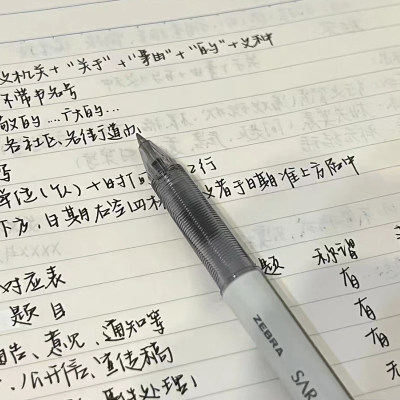 文机关+"关于"+"事由"+"的"+文种
不带书名号
敬的…广大的…
各社区、各街道办
号
单位(个人)+时间 2行
下方,日期右空四格 者于日期准上方居中
对应表
题目
题 称谓
有
报告、意见、通知等
有
、公开信、宣传稿
有
ZEBRA
SAR